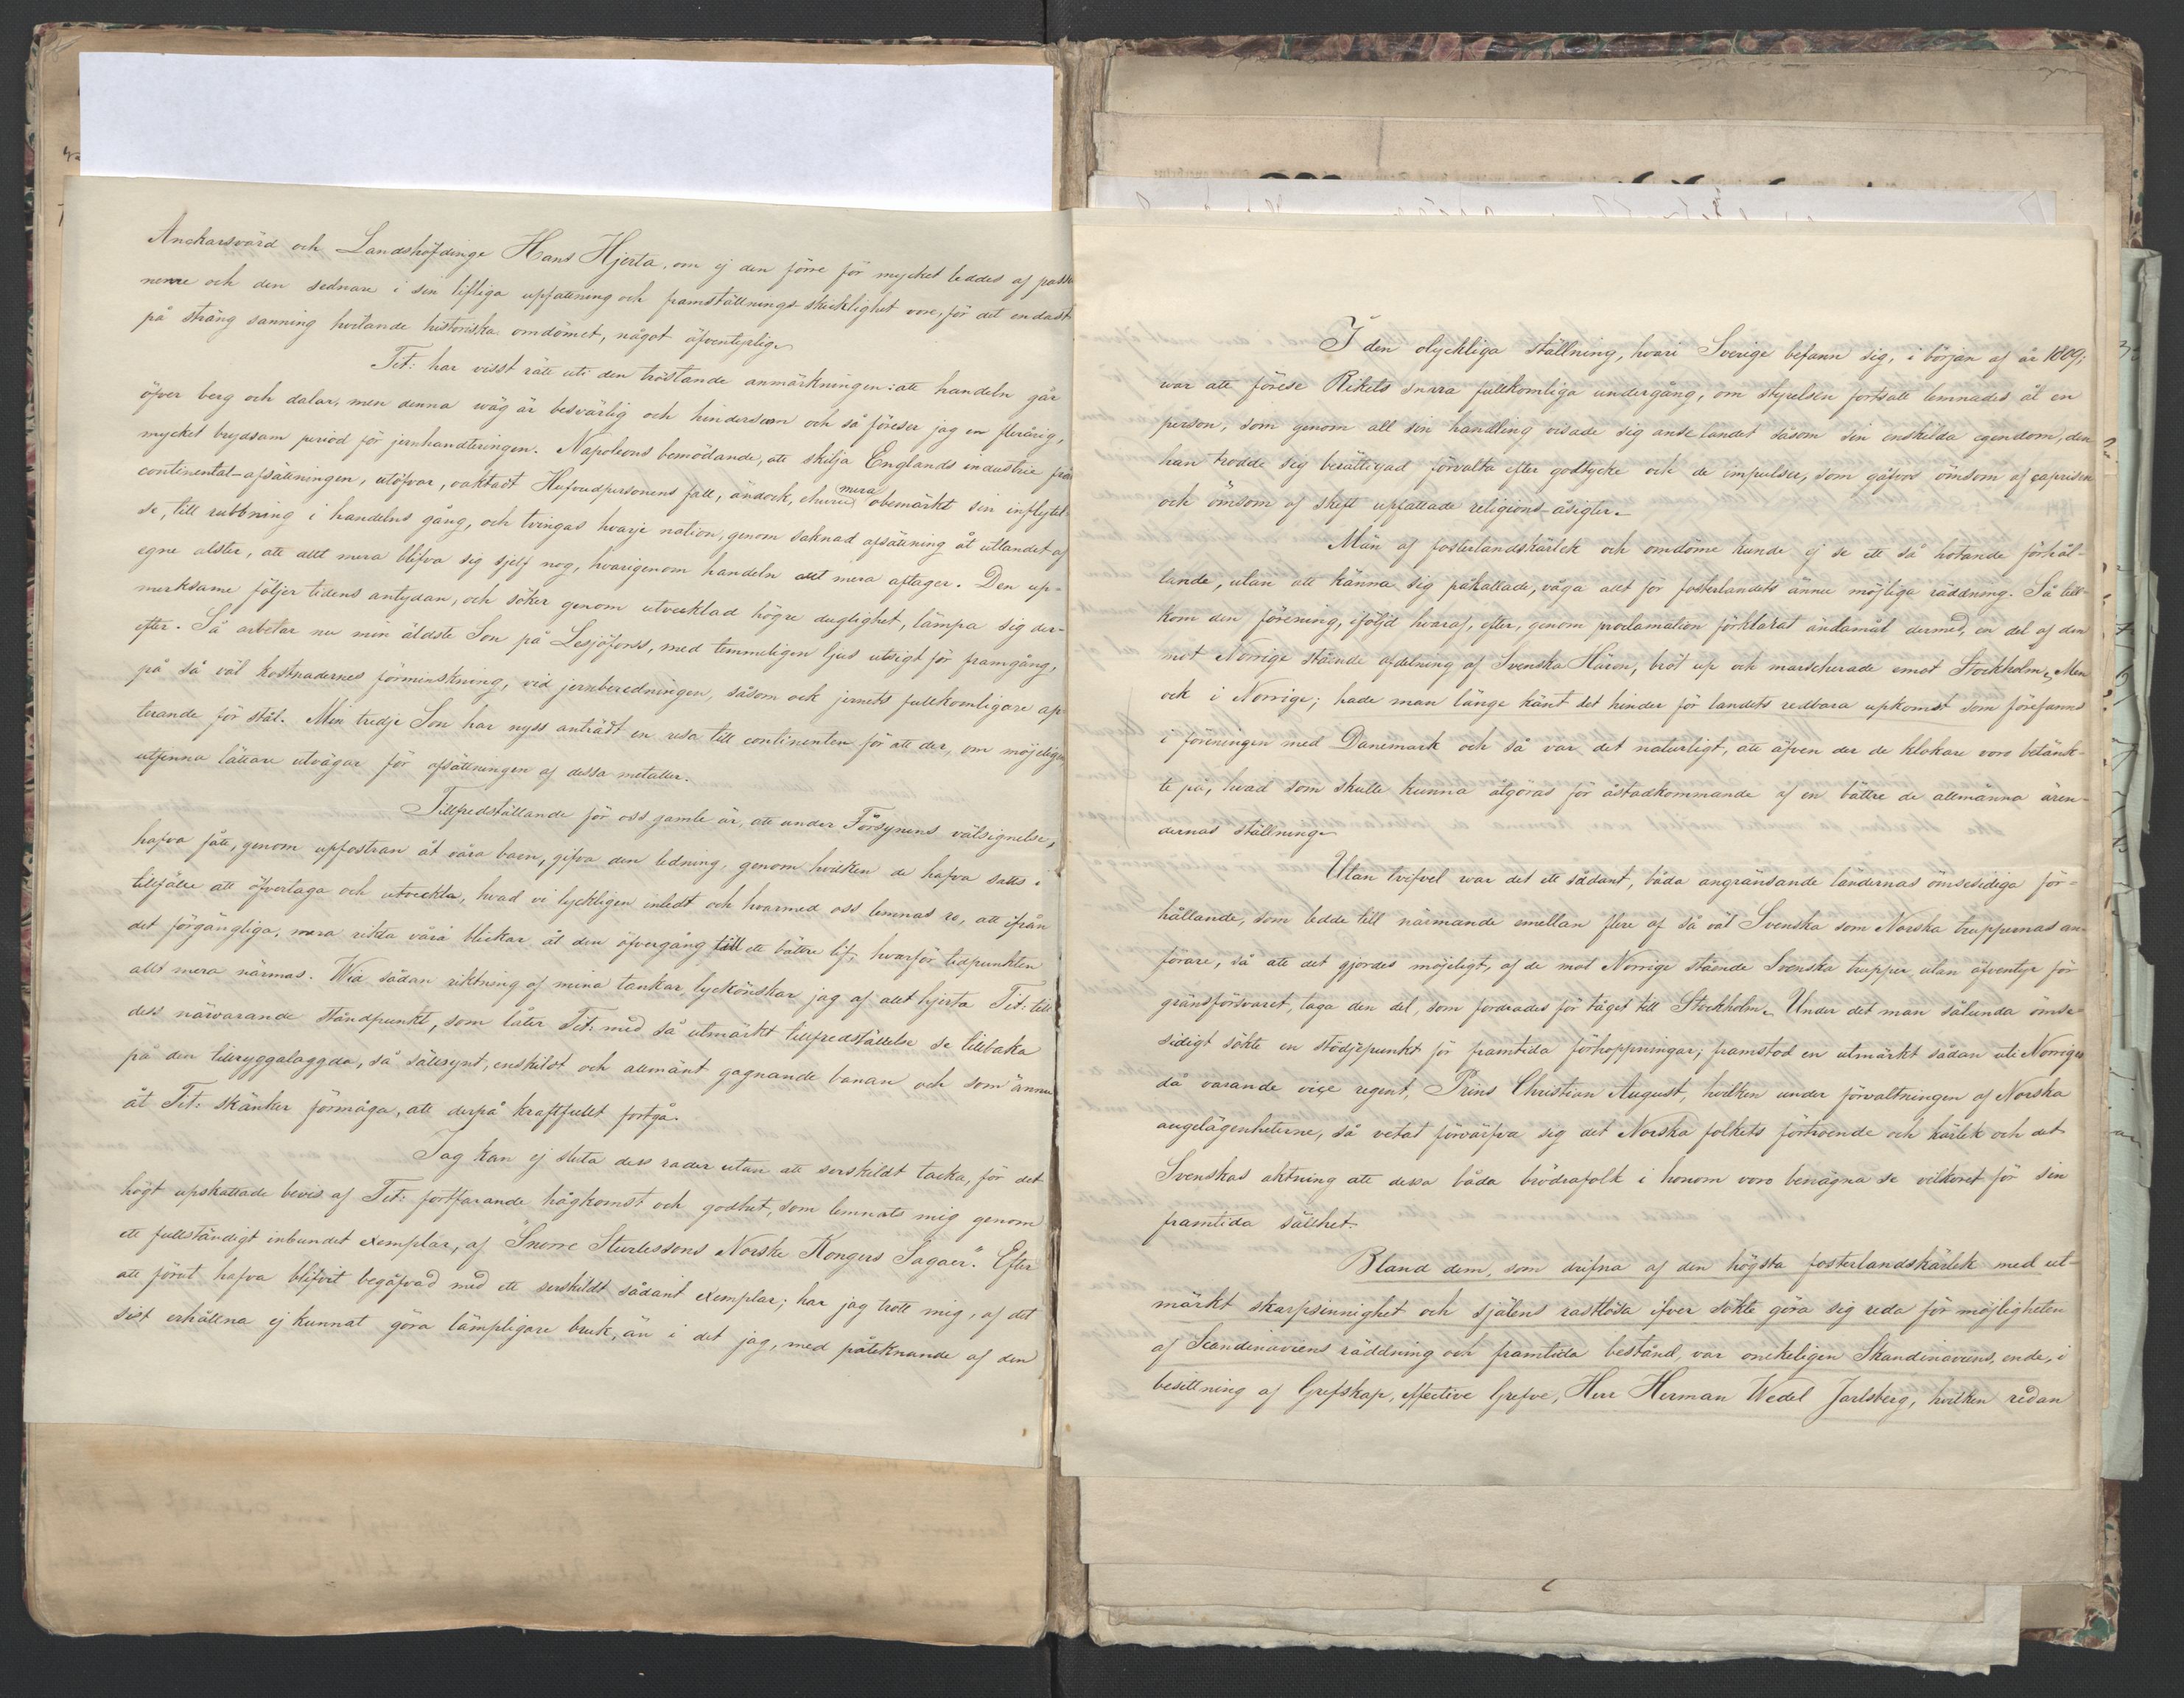 Anckarsvärd och Landshöfdinge Hans Hjerta, om ej den förre för mycket leddes af passio
nerne och den sednare i sin lifliga uppfattning och framställnings-skicklighet vore, för det endast
på sträng sanning hvilande historiska omdömet, något äfventyrlig.
Tit: har visst rätt uti den tröstande anmärkningen: att handeln går
öfver berg och dalar, men denna wäg är besvärlig och hindersam och så föreser jag en flerårig,
mycket brydsam period för jernhandteringen. Napoleons bemödande, att skilja Englands industrie från
continental-afsättningen, utöfvar, oaktadt Hufvudpersonens fall, ändock, ehuru mera obemärkt sin inflytel-
se, till rubbning i handelns gång, och tvingas hvarje nation, genom saknad afsättning åt utlandet af
egne alster, att allt mera blifva sig sjelf nog, hvarigenom handeln allt mera aftager. Den up-
merksame följer tidens antydan, och söker genom utvecklad högre duglighet, lämpa sig der-
efter. Så arbetar nu min äldste Son på Lesjöforss, med temmeligen ljus utsigt för framgång,
på så väl kostnadernes förminskning, vid jernberedningen, såsom ock jernets fullkomligare ap-
terande för stål. Min tredje Son har nyss anträdt en resa till continenten för att der, om möjeligen
utfinna lättare utvägar för afsättningen af dessa metaller.
Tillfredställande för oss gamle är, att under Försynens välsignelse,
hafva fått, genom uppfostran åt våra barn, gifva den ledning, genom hvilken de hafva satts i
tillfälle att öfvertaga och utveckla, hvad vi lyckligen inledt och hvarmed oss lemnas ro, att ifrån
det förgängliga, mera rikta våra blickar åt den öfvergång till ett bättre lif, hvarför tidpunkten
allt mera närmas. Wid sådan riktning af mina tankar, lyckönskar jag af allt hjerta Tit: till
dess närvarande ståndpunkt, som låter Tit: med så utmärkt tillfredställelse se tillbaka
på den tillryggalaggda, så sällsynt, enskildt och allmänt gagnande banan och som ännu
åt Tit: skänker förmåga, att derpå kraftfullt fortgå.
Jag kan ej sluta dess rader utan att serskildt tacka, för det
högt upskattade bevis af Tit: fortfarande hågkomst och godhet, som lemnats mig genom
ett fullständigt inbundet exemplar, af "Snorre Sturlessons Norske Kongers Sagaer". Efter
att förut hafva blifvit begåfvad med ett serskildt sådant exemplar; har jag trott mig, af det
sist erhållna ej kunnat göra lämpligare bruk, än i det jag, med påteknande af den
I den olyckliga ställning, hvari Sverige befann sig, i början af år 1809;
war att förese Rikets snara fullkomliga undergång, om styrelsen fortsatt lemnades åt en
person, som genom all sin handling visade sig anse landet såsom sin enskilda egendom, den
han trodde sig berättigad förvalta efter godtycke och de impulser, som gåfvos ömsom af caprisen
och ömsom af skeft uppfattade religions-åsigter.
Män af fosterlandskärlek och omdöme kunde ej se ett så hotande förhål-
lande, utan att känna sig påkallade, våga allt för fosterlandets ännu möjliga räddning. Så till-
kom den förening, iföljd hvaraf, efter, genom proclamation förklarat ändamål dermed, en del af den
mot Norrige stående afdelning af Svenska Hären, bröt up och marscherade emot Stockholm. Men
ock i Norrige; hade man länge känt det hinder för landets redbara upkomst som förefanns
i föreningen med Danemark och så var det naturligt, att äfven der de klokare voro betänk-
te på, hvad som skulle kunna åtgöras för åstadkommande af en bättre de allmänna ären-
dernas ställning.
Utan tvifvel war det ett sådant, båda angränsande ländernas ömsesidiga för-
hållande, som ledde till närmande emellan flere af så väl Svenska som Norska truppernas an-
förare, så att det gjordes möjeligt, af de mot Norrige stående Svenska trupper, utan äfventyr för
gränsförsvaret, taga den del, som fordrades för tåget till Stockholm. Under det man sålunda ömse-
sidigt sökte en stödjepunkt för framtida förhoppningar; framstod en utmärkt sådan uti Norriges
då varande vice regent, Prins Christian August, hvilken under förvaltningen af Norska
angelägenheterne, så vetat förvärfva sig det Norska folkets förtroende och kärlek och det
Svenskas aktning att dessa båda brödrafolk i honom voro benägna se vilkoret för sin
framtida sällhet.
Bland dem, som drifna af den högsta fosterlandskärlek med ut-
märkt skarpsinnighet och själens rastlösa ifver sökte göra sig reda för möjligheten
af Scandinaviens räddning och framtida bestånd, var onekeligen Skandinaviens, ende, i
besittning af Grefskap, effective Grefve, Herr Herman Wedel Jarlsberg, hvilken redan